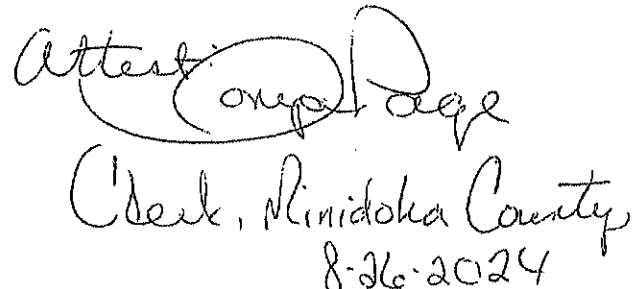 Attest: Tonya Page
Clerk, Minidoka County
8-26-2024